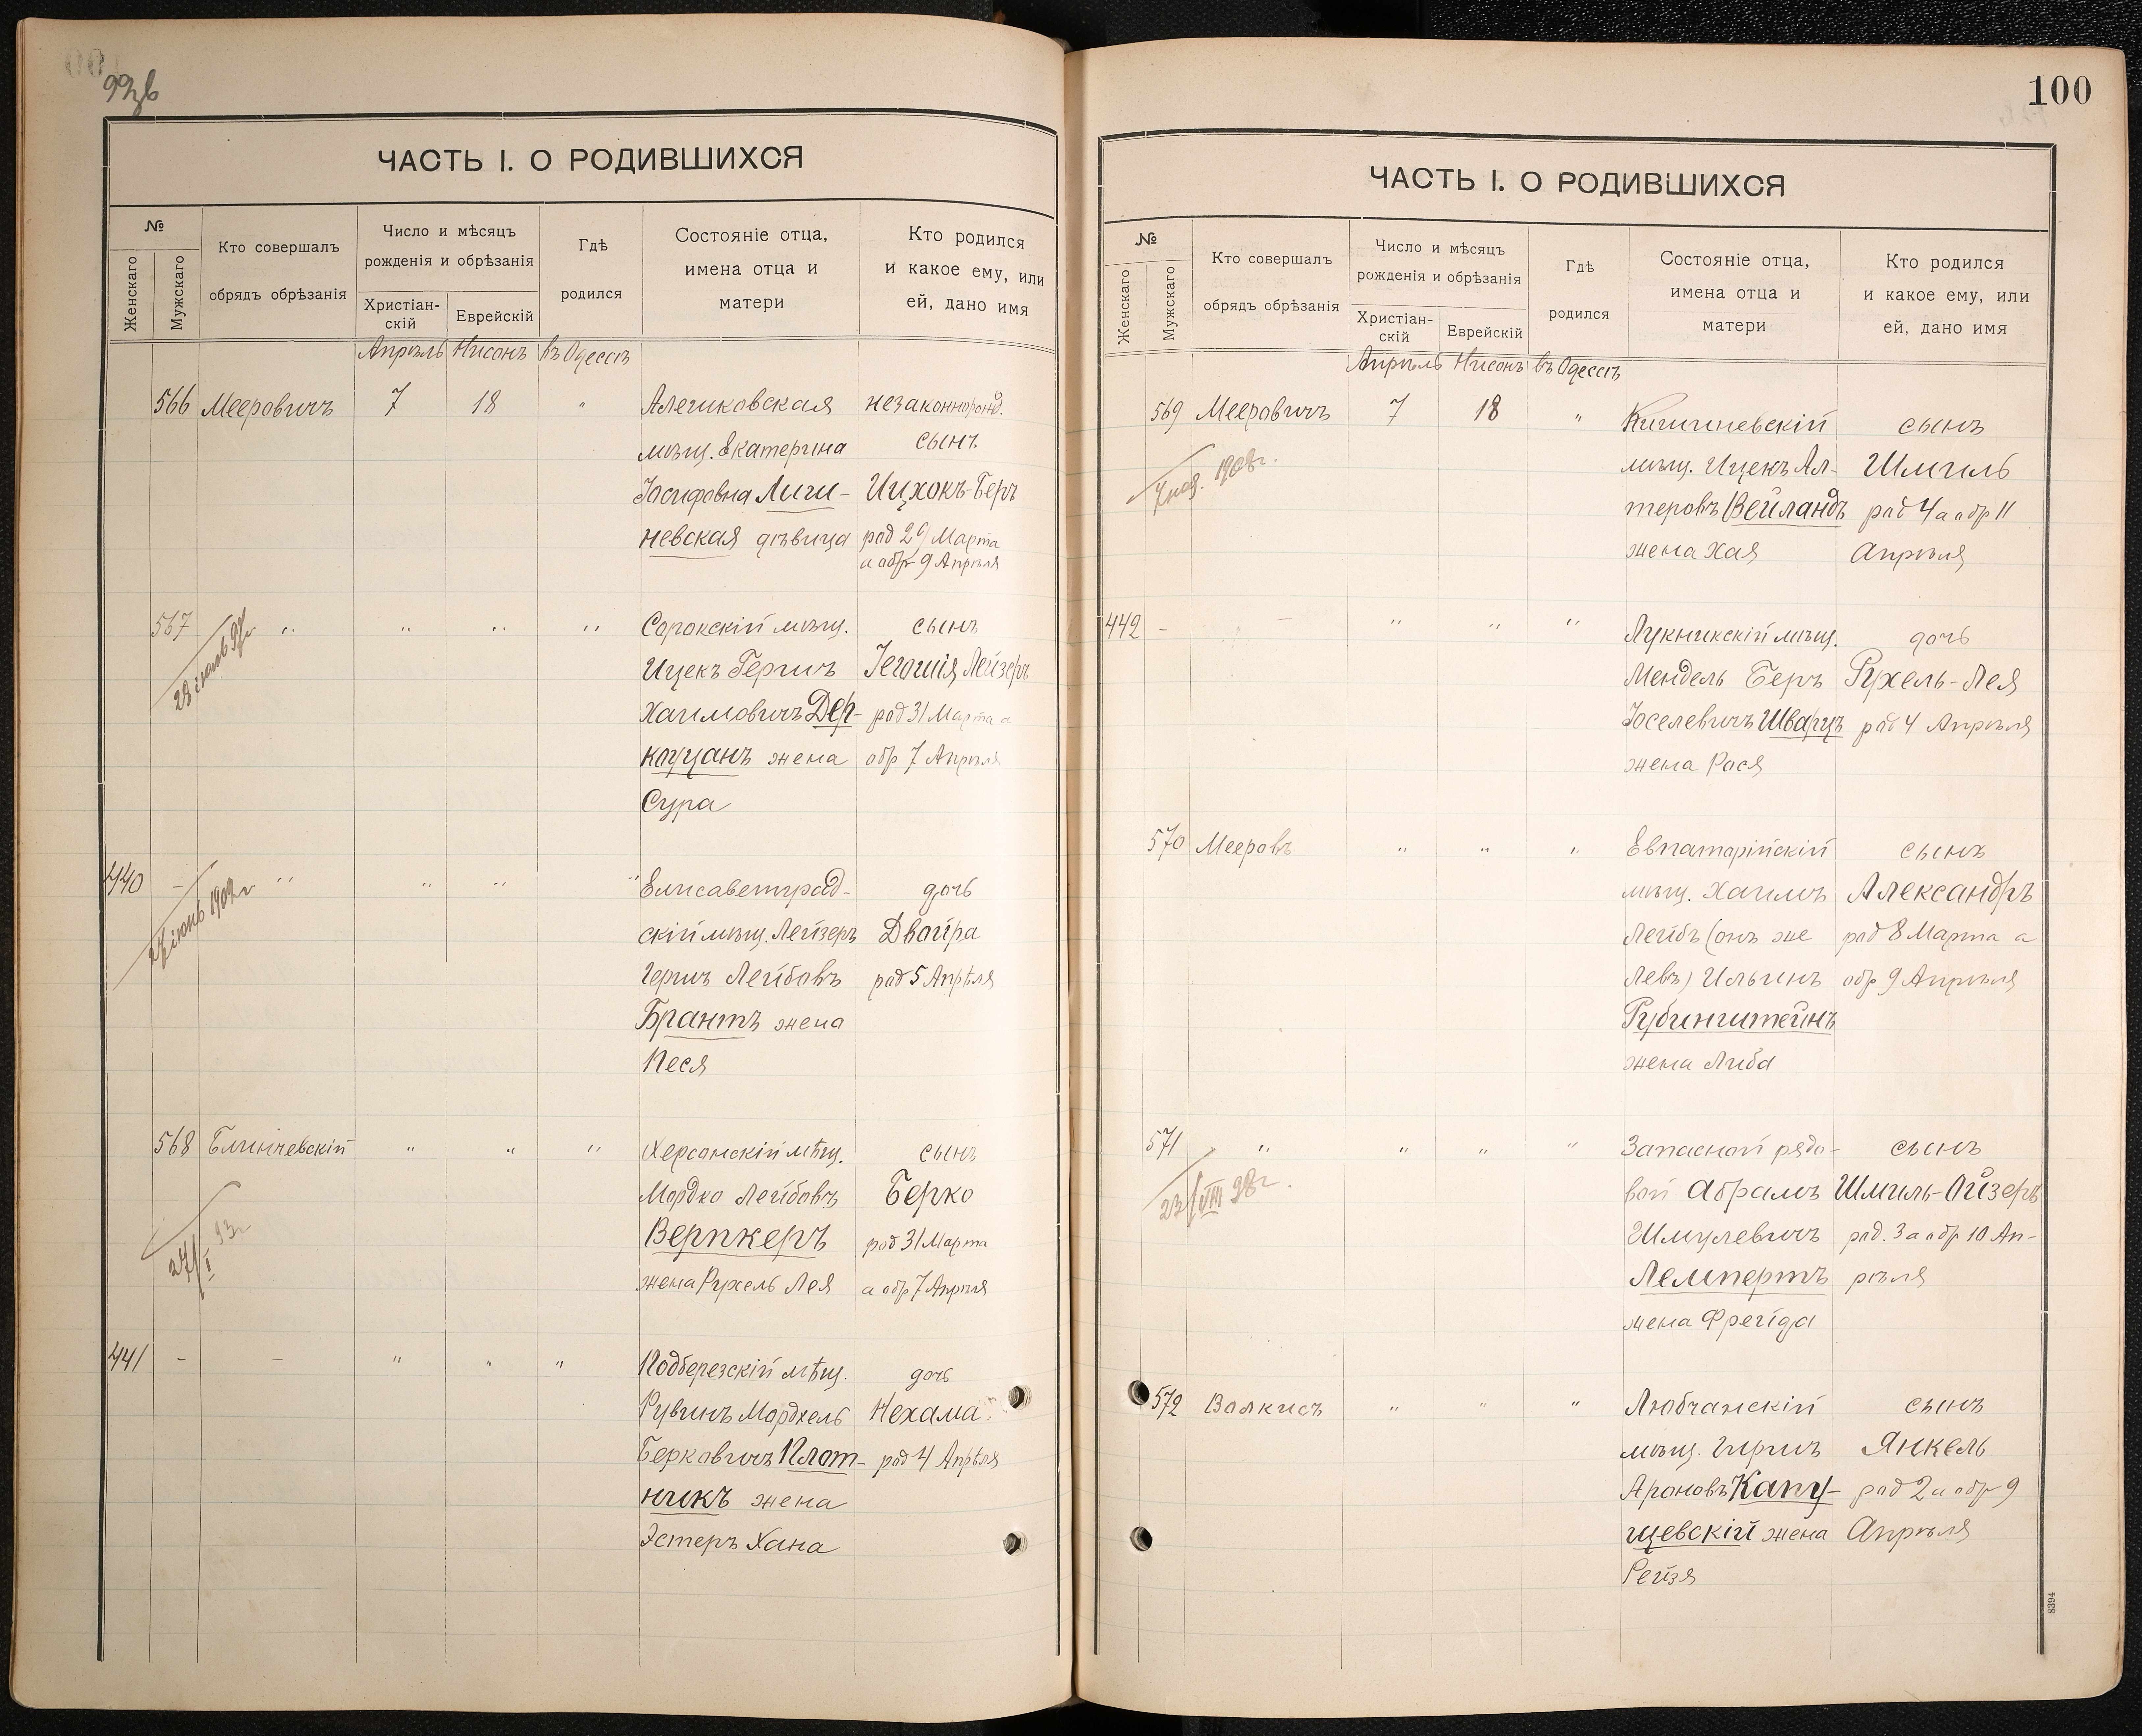 99зв
ЧАСТЬ I. О РОДИВШИХСЯ
№
Женскаго
Мужскаго
Кто совершалъ
обрядъ обрѣзанія
Число и мѣсяцъ
рожденія и обрѣзанія
Христіан-
скій
Еврейскій
Гдѣ
родился
Состояніе отца,
имена отца и
матери
Кто родился
и какое ему, или
ей, дано имя
Апрѣль Нисонъ въ Одессѣ
566 Мееровичъ 7 18 " Алешковская незаконнорожд.
мѣщ. Екатерина сынъ
Іосифовна Лиги- Ицхокъ-Беръ
невская дѣвица род 29 Марта
а обр 9 Апрѣля
567 " " " " Сорокскій мѣщ. сынъ
23 іюль 97г
Ицекъ Гершъ Іегошія Лейзеръ
Хаимовичъ Дер- род 31 Марта а
кауцанъ жена обр 7 Апрѣля
Сура
440 - " " " " Елисаветград- дочь
27 іюнь 1902г
скій мѣщ. Лейзеръ Двойра
Гершъ Лейбовъ род 5 Апрѣля
Брантъ жена
Песя
568 Блинчевскій " " " Херсонскій мѣщ. сынъ
Мордко Лейбовъ Берко
27/I 93г
Верпкеръ род 31 Марта
жена Рухель Лея а обр 7 Апрѣля
441 - - " " " Подберезскій мѣщ. дочь
Рувинъ Мордхель Нехама
Берковичъ Плот- род 4 Апрѣля
никъ жена
Эстеръ Хана
100
ЧАСТЬ I. О РОДИВШИХСЯ
№
Женскаго
Мужскаго
Кто совершалъ
обрядъ обрѣзанія
Число и мѣсяцъ
рожденія и обрѣзанія
Христіан-
скій
Еврейскій
Гдѣ
родился
Состояніе отца,
имена отца и
матери
Кто родился
и какое ему, или
ей, дано имя
Апрѣль Нисонъ въ Одессѣ
569 Мееровичъ 7 18 " Кишиневскій сынъ
1908г.
мѣщ. Ицекъ Ал- Шмиль
теровъ Вейландъ род 4 а обр 11
жена Хая Апрѣля
442 - - " " " Лукникскій мѣщ. дочь
Мендель Беръ Рухель-Лея
Іоселевичъ Шварцъ род 4 Апрѣля
жена Рася
570 Мееровъ " " " Евпаторійскій сынъ
мѣщ. Хаимъ Александръ
Лейбъ (онъ же род 8 Марта а
Левъ) Ильинъ обр 9 Апрѣля
Рубинштейнъ
жена Либа
571 " " " " Запасной рядо- сынъ
23/VIII 98г.
вой Абрамъ Шмиль-Ойзеръ
Шмулевичъ род. 3 а обр 10 Ап-
Лемпертъ рѣля
жена Фрейда
572 Волкисъ " " " Любчанскій сынъ
мѣщ. Гиршъ Янкель
Ароновъ Капу- род 2 а обр 9
щевскій жена Апрѣля
Рейзя
8394